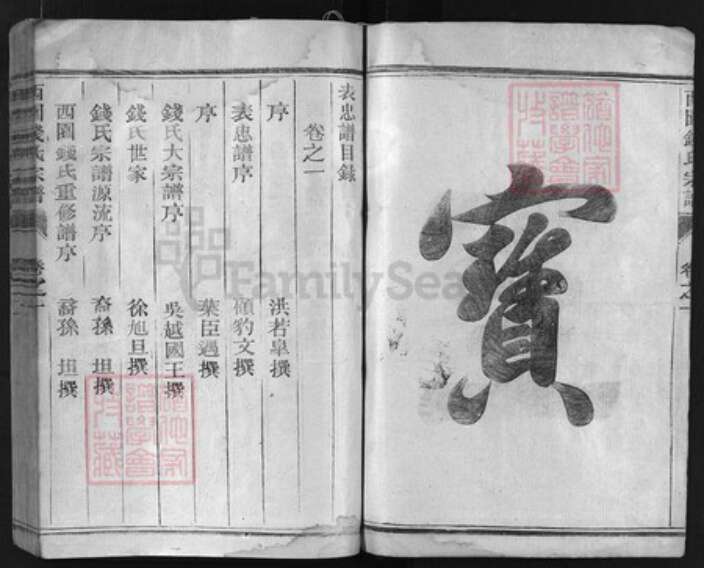 寶
表忠譜目錄
卷之一
序 洪若皋撰
表忠譜序 顧豹文撰
序 葉臣遇撰
錢氏大宗譜序 吳越國王撰
錢氏世家 徐旭旦撰
錢氏宗譜源流序 裔孫 坦撰
西園錢氏重修譜序 裔孫 坦撰
西園錢氏宗譜 卷之一
西園錢氏宗譜 卷之一
譜學會
收藏
譜學會
收藏
FamilySea